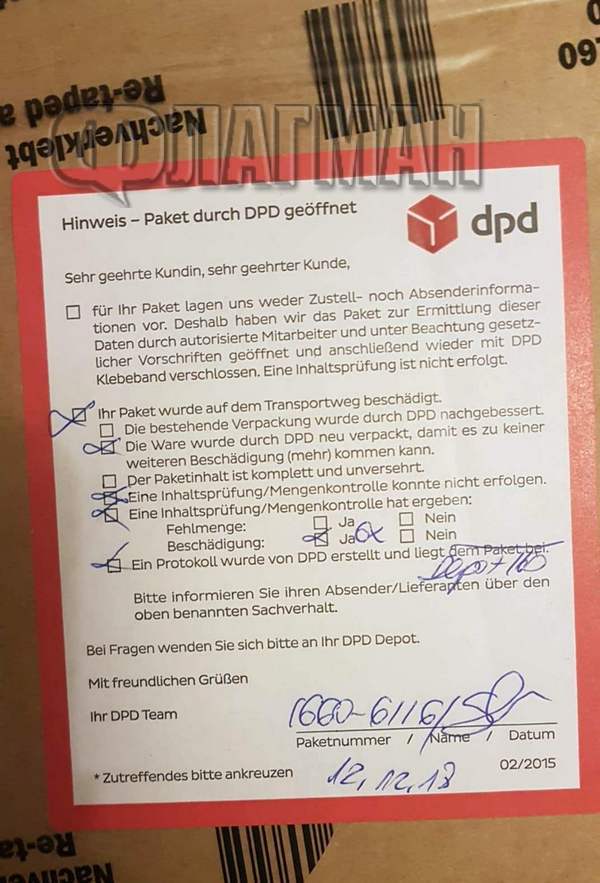 Nachverklebt
Re-taped a
ФЛАГМАН
Hinweis – Paket durch DPD geöffnet
dpd
Sehr geehrte Kundin, sehr geehrter Kunde,
für Ihr Paket lagen uns weder Zustell- noch Absenderinforma-
tionen vor. Deshalb haben wir das Paket zur Ermittlung dieser
Daten durch autorisierte Mitarbeiter und unter Beachtung gesetz-
licher Vorschriften geöffnet und anschließend wieder mit DPD
Klebeband verschlossen. Eine Inhaltsprüfung ist nicht erfolgt.
Ihr Paket wurde auf dem Transportweg beschädigt.
Die bestehende Verpackung wurde durch DPD nachgebessert.
Die Ware wurde durch DPD neu verpackt, damit es zu keiner
weiteren Beschädigung (mehr) kommen kann.
Der Paketinhalt ist komplett und unversehrt.
Eine Inhaltsprüfung/Mengenkontrolle konnte nicht erfolgen.
Eine Inhaltsprüfung/Mengenkontrolle hat ergeben:
Fehlmenge: Ja Nein
Beschädigung: Ja 6x Nein
Ein Protokoll wurde von DPD erstellt und liegt dem Paket bei.
Depot
Bitte informieren Sie ihren Absender/Lieferanten über den
oben benannten Sachverhalt.
Bei Fragen wenden Sie sich bitte an Ihr DPD Depot.
Mit freundlichen Grüßen
Ihr DPD Team
1660-6116/
Paketnummer / Name / Datum
* Zutreffendes bitte ankreuzen
12.12.18
02/2015
Re-ta
Nachver